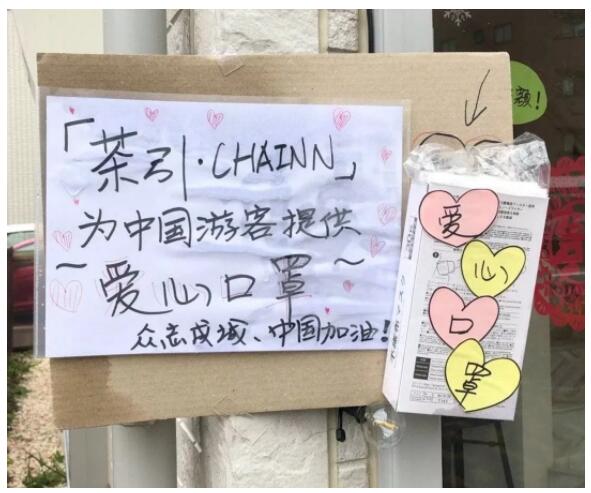 「茶引·CHAINN」
为中国游客提供
~爱心口罩~
众志成城、中国加油!
爱
心
口
罩
额!